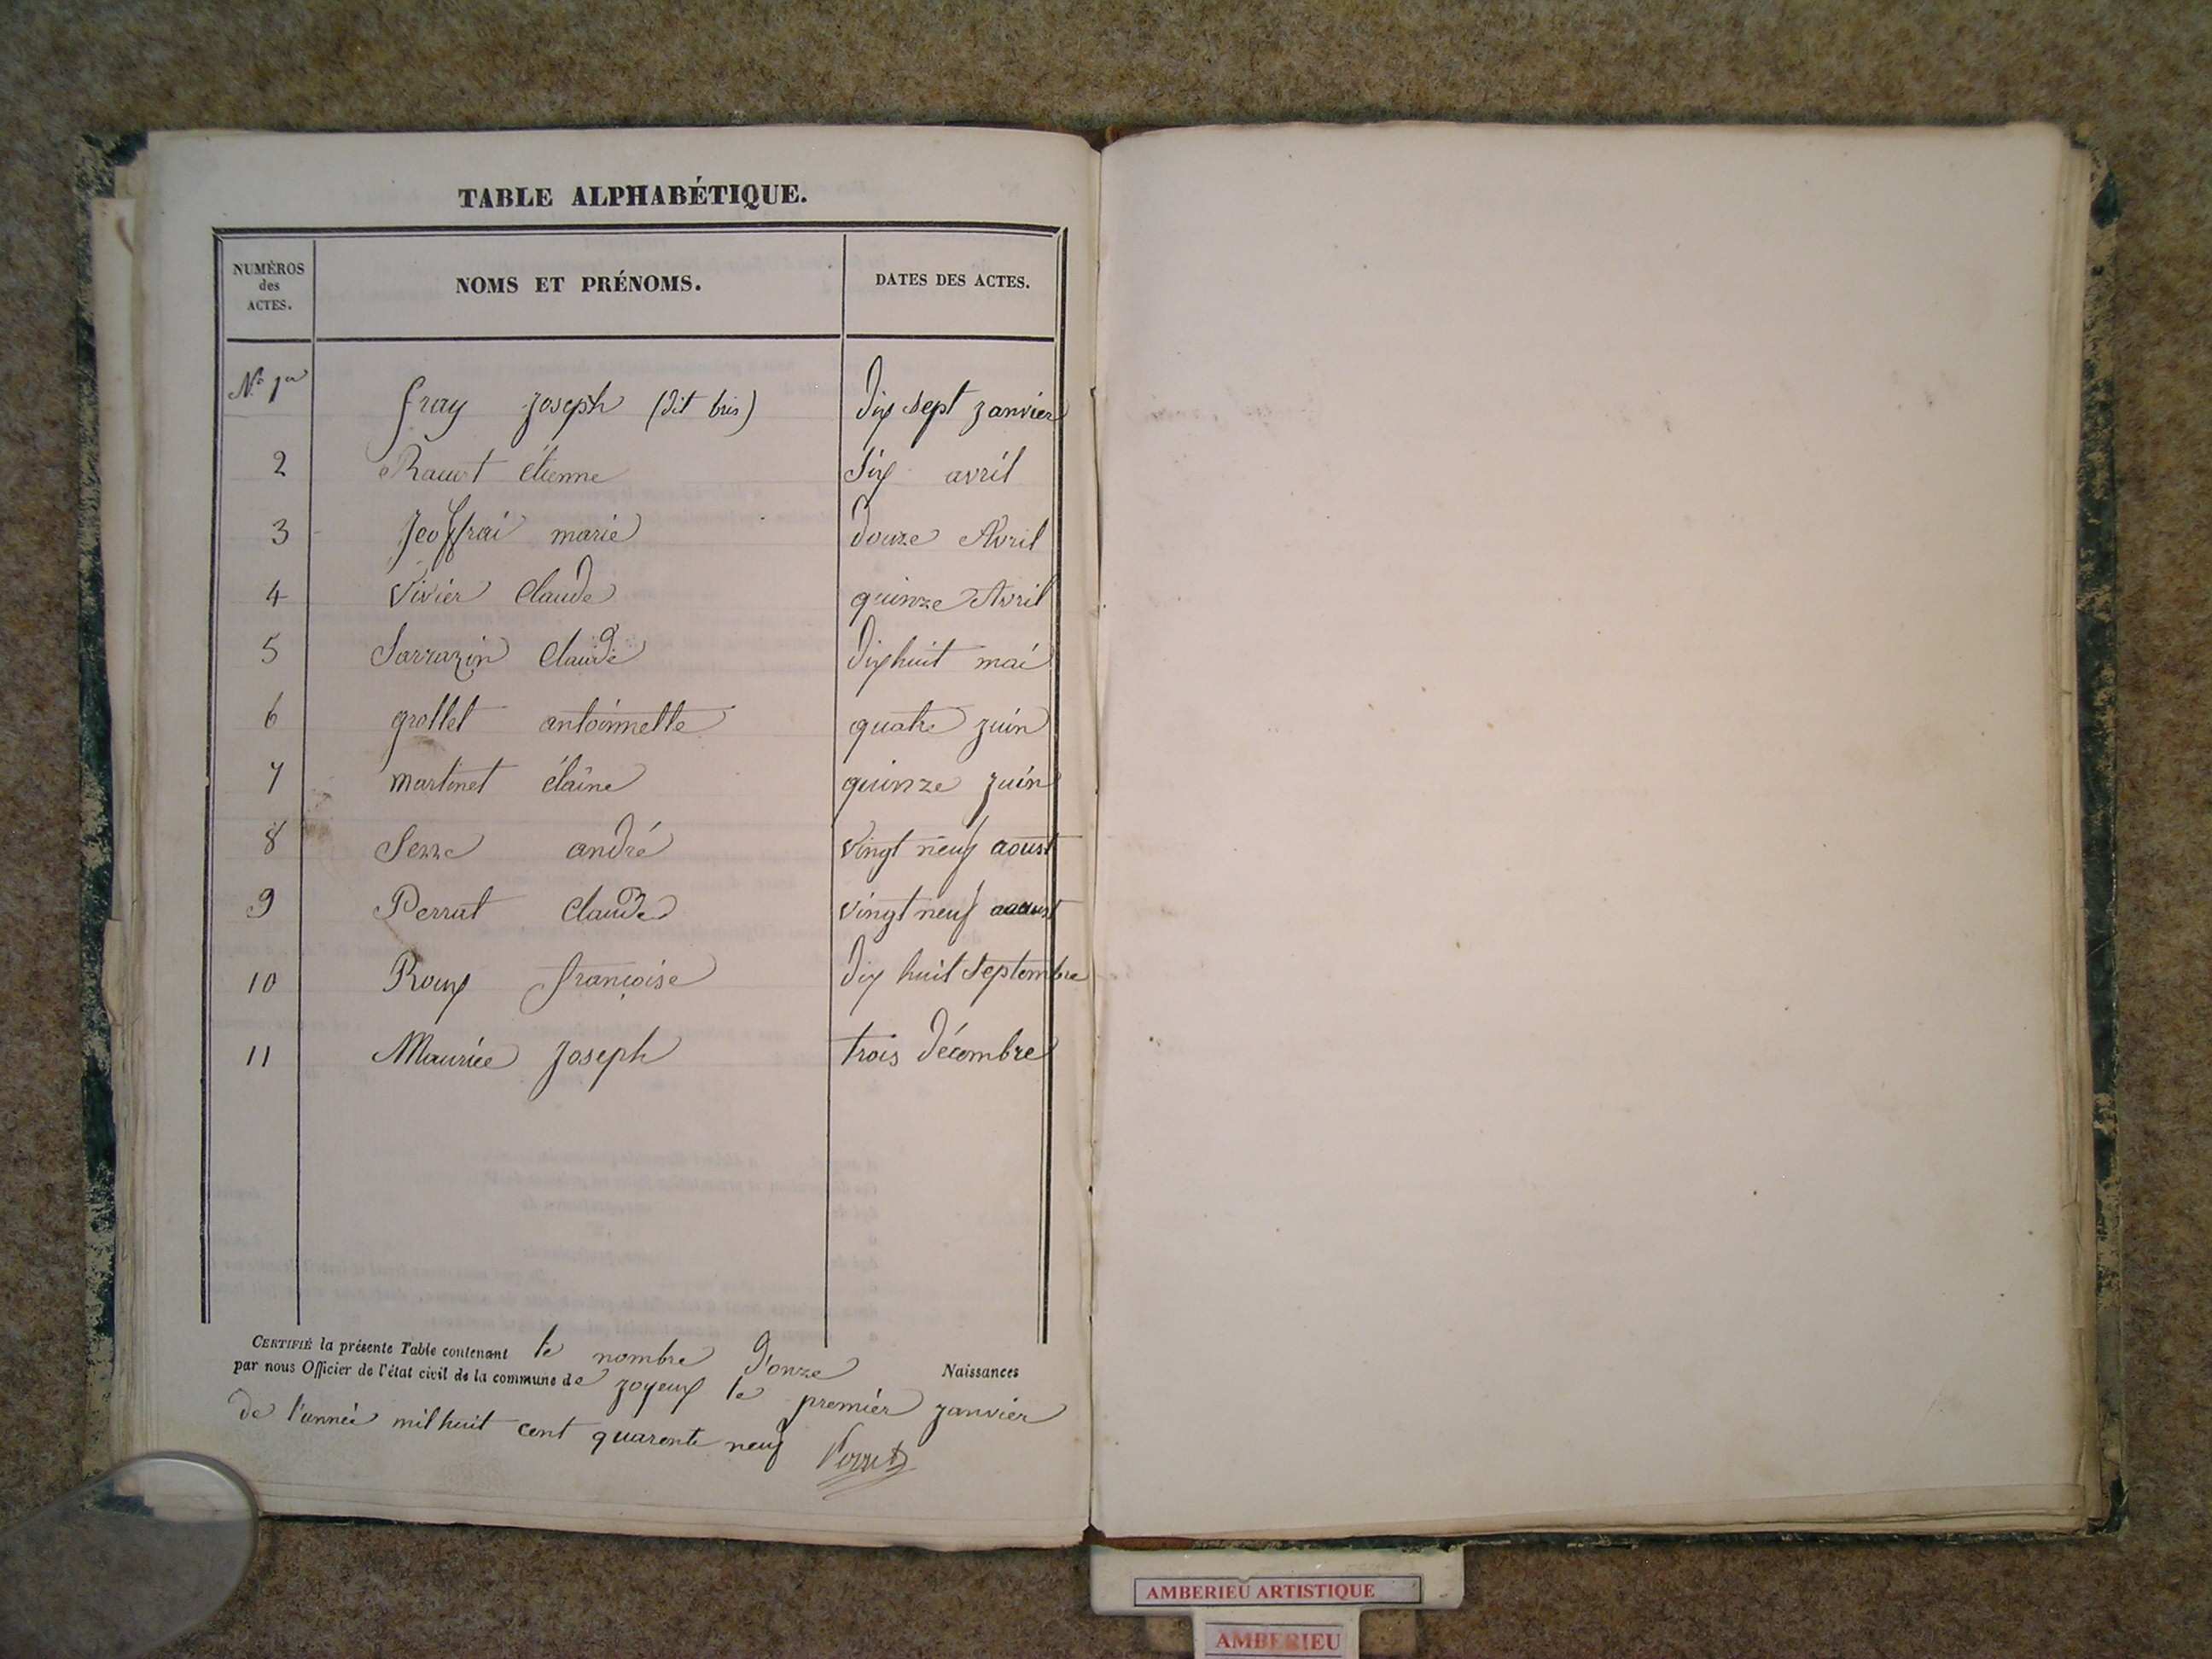 TABLE ALPHABÉTIQUE.
NUMÉROS des ACTES.
NOMS ET PRÉNOMS.
DATES DES ACTES.
N° 1er fray Joseph (dit bris) dix sept janvier
2 Ravet étienne dix avril
3 Jeoffrai marie douze Avril
4 Vivier Claude quinze Avril
5 Sarrazin Claude dix huit mai
6 grollet antoinnette quatre juin
7 Martinet élaine quinze juin
8 Serre andré vingt neuf aoust
9 Perrat Claude vingt neuf aoust
10 Roux françoise dix huit septembre
11 Maurice Joseph trois décembre
CERTIFIÉ la présente Table contenant le nombre d'onze Naissances
par nous Officier de l'état civil de la commune de joyeux le premier janvier
de l'année mil huit cent quarente neuf
AMBERIEU ARTISTIQUE
AMBERIEU